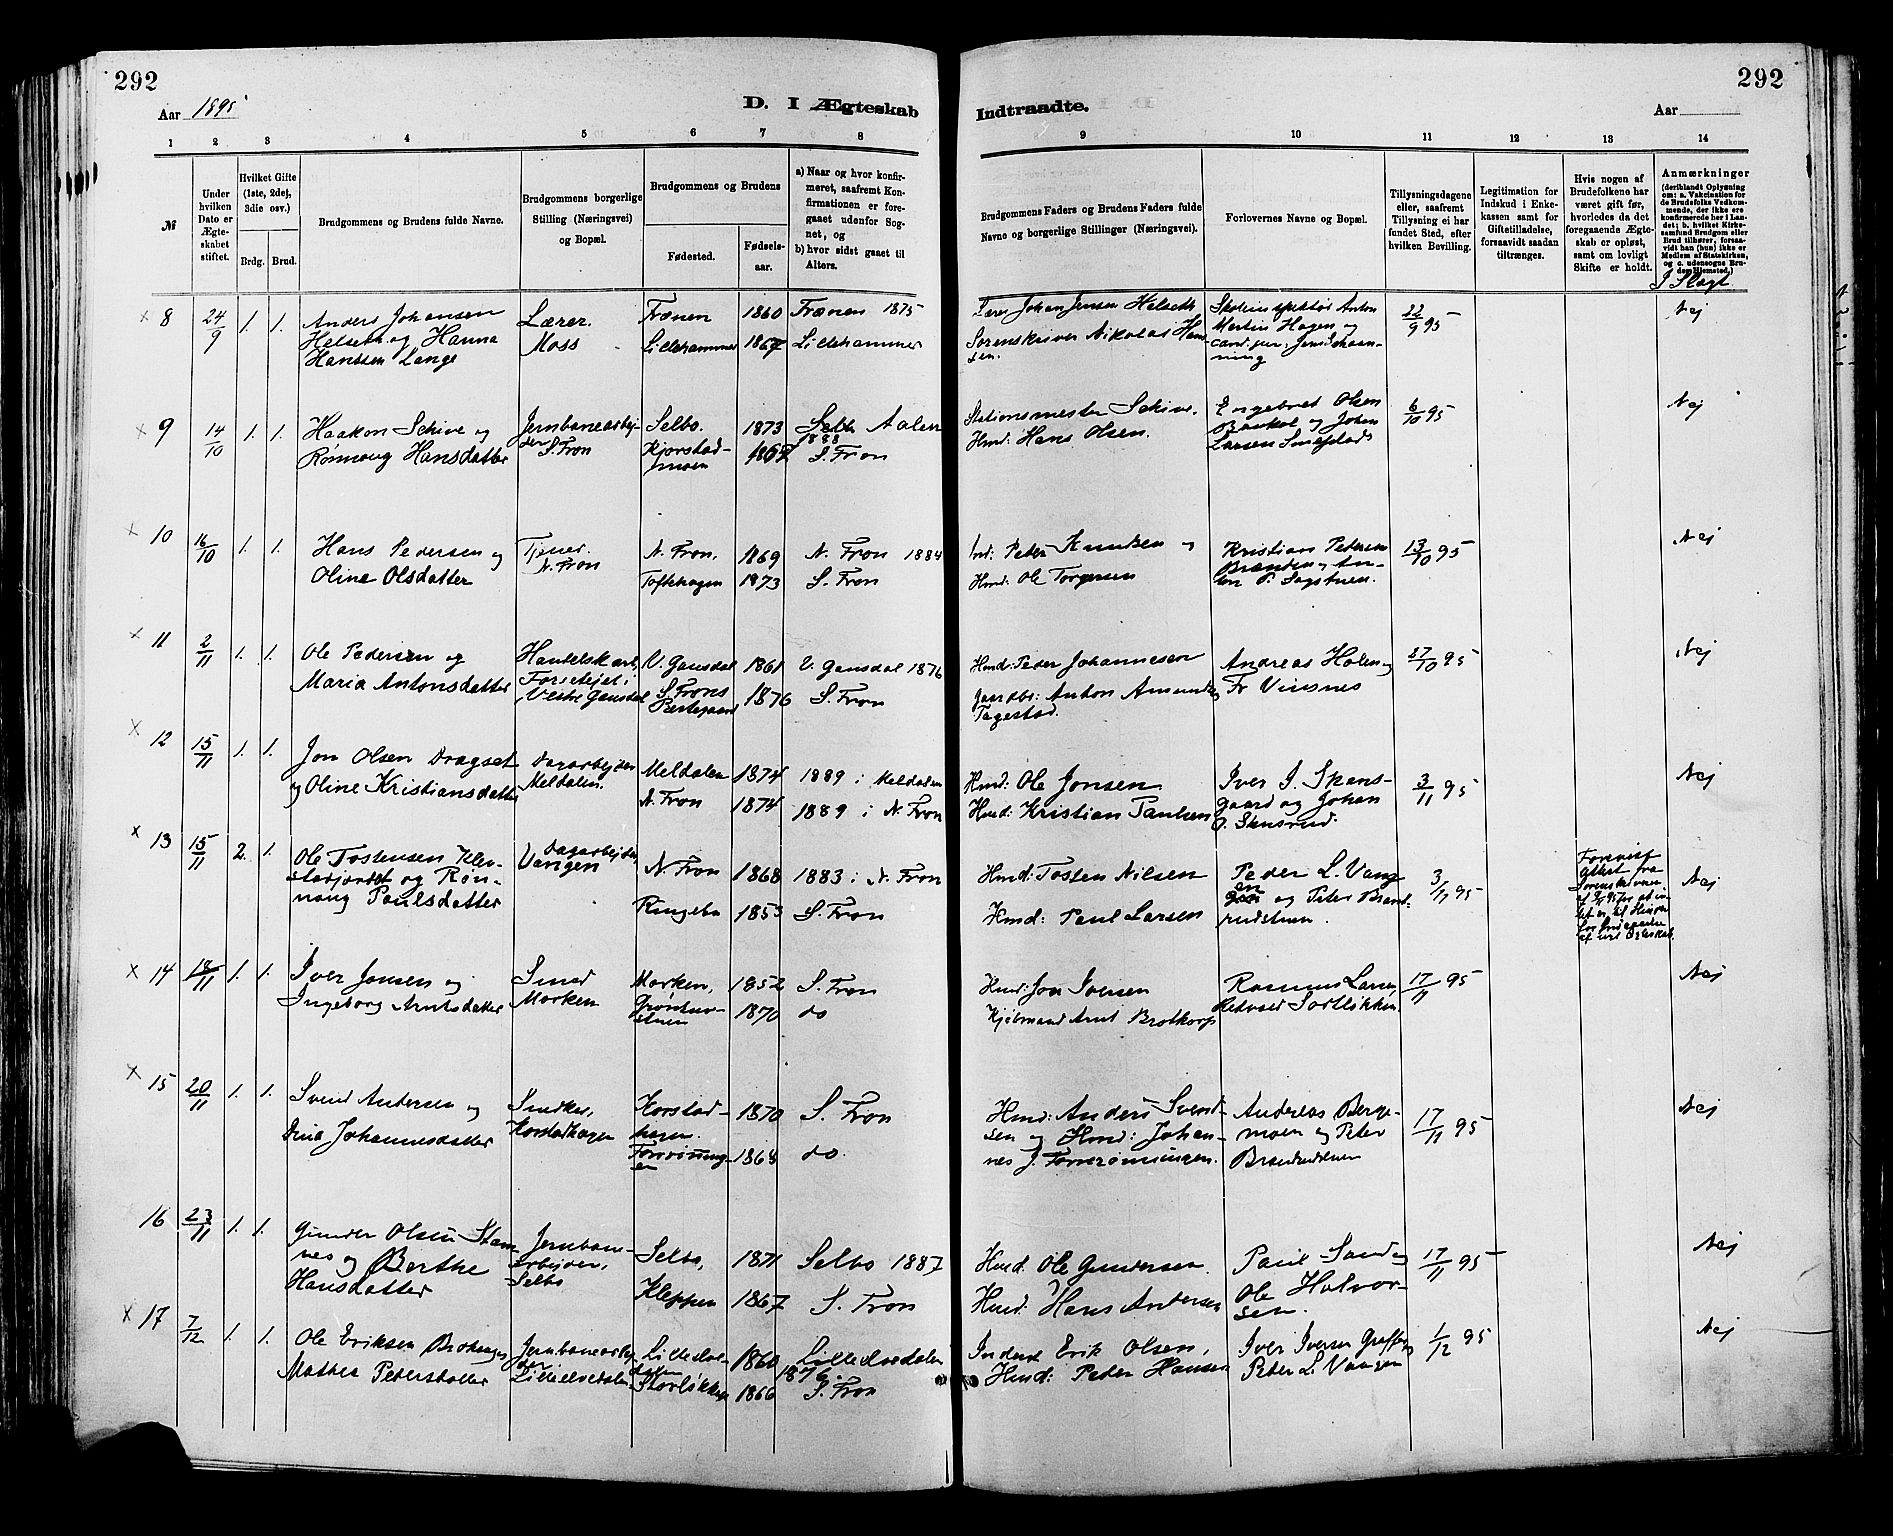 292
Aar 1895
D. I Ægteskab
1 2 3 4 5 6 7 8
№
Under hvilken Dato er Ægteskabet stiftet.
Hvilket Gifte (1ste, 2det, 3die osv.)
Brdg. Brud.
Brudgommens og Brudens fulde Navne.
Brudgommens borgerlige Stilling (Næringsvei) og Bopæl.
Brudgommens og Brudens
Fødested.
Fødselsaar.
a) Naar og hvor konfirmeret, saafremt Konfirmationen er foregaaet udenfor Sognet, og
b) hvor sidst gaaet til Alters.
8 24/9 1. 1. Anders Johansen Lærer. Frænen 1860 Frænen 1875
Helseth og Hanna Moss Lillehammer 1867 Lillehammer
Hanssen Lange
9 14/10 1. 1. Haakon Schive og Jernbanearbej- Selbo. 1873 Selb Aalen
der S. Fron 1888
Rønnaug Hansdatter Kjorstad- 1867 S. Fron
moen
10 16/10 1. 1. Hans Pedersen og Tjener. N. Fron, 1869 N. Fron 1884
N. Fron
Oline Olsdatter Toftehagen 1873 S. Fron
11 2/11 1. 1. Ole Pedersen og V. Gausdal 1861 V. Gausdal 1876
Maria Antonsdatter Vestre Gausdal S. Frons 1876 S. Fron
Præstegaard
12 15/11 1. 1. Jon Olsen Dragset Dagarbejder Meldalen 1874 1889 i Meldalen
og Oline Kristiansdatter Meldalen. N. Fron 1874 1889 i N. Fron
13 15/11 2. 1. Ole Tostensen Klev- Dagarbejder, N. Fron 1868 1883 i N. Fron
stadjordet og Røn- Vangen
naug Paulsdatter Ringebu 1853 S. Fron
14 18/11 1. 1. Iver Jonsen og Smed Morken, 1852 S. Fron
Ingeborg Arntsdatter Morken 1870 do
15 20/11 1. 1. Svend Andersen og Snedker, Korstad- 1870 S. Fron
hagen.
Dina Johannesdatter Korstadhagen 1868 do.
16 23/11 1. 1. Gunder Olsen Stam- Jernbane- Selbo, 1871 Selbo 1887
nes og Berthe arbejder,
Hansdatter Selbo Kleppen 1867 S. Fron
17 7/12 1. 1. Ole Eriksen Jernbanearbej- Lilleelve- 1860 Lilleelvedalen
der dalen 1876.
Mathea Petersdatter Lilleelvedalen Storløkken 1866 S. Fron
292
Indtraadte.
Aar
9 10 11 12 13 14
Brudgommens Faders og Brudens Faders fulde Navne og borgerlige Stillinger (Næringsvei).
Forlovernes Navne og Bopæl.
Tillysningsdagene eller, saafremt Tillysning ei har fundet Sted, efter hvilken Bevilling.
Legitimation for Indskud i Enkekassen samt for Giftetilladelse, forsaavidt saadan tiltrænges.
Hvis nogen af Brudefolkene har været gift før, hvorledes da det foregaaende Ægteskab er opløst, samt om lovligt Skifte er holdt.
Anmærkninger (deriblandt Oplysning om: a. Vakcination for de Brudefolks Vedkommende, der ikke ere konfirmerede her i Landet; b. hvilket Kirkesamfund Brudgom eller Brud tilhører, forsaavidt han (hun) ikke er Medlem af Statskirken, og c. udensogns Brudes Hjemsted.)
I Slægt
Lærer Johan Jensen Helseth Skoleinspektør Anton 22/9 95 Nej
Sorenskriver Nikolai Han- Martin Hagen og
sen. cand. jur.
ning
Stationsmester Schive. Engebret Olsen 6/10 95 Nej
Hmd: Hans Olsen. og Johan
Larsen
Ind: Peter Knudsen og Kristian Petersen 13/10 95 Nej
Hmd: Ole Torgersen
Hmd: Peder Johannesen Andreas Holen og 27/10 95 Nej
Gaardbr: Anton Amundsen Fr Vinsnes
Tagestad.
Hmd: Ole Jonsen Iver J. Skans- 3/11 95 Nej
Hmd: Kristian Paulsen gaard og Johan
Hmd: Tosten Nilsen Peder L. Vang 3/11 95 Nej
en
Hmd: Paul Larsen og Peter Brand-
rudstuen.
Forevist
attest fra
Sorenskriver
Hmd: Jon Iversen Rasmus Larsen 17/11 95 Nej
Kjøbmand Arnt Brotkorp Sortløkken.
Hmd: Anders Svend- Andreas Berge- 17/11 95 Nej
sen og Hmd: Johan- moen og Peter
nes J. Brandrudstuen
Hmd: Ole Gundersen. Paul Sand og 17/11 95 Nej
Hmd: Hans Andersen Ole Halvor-
sen.
Inderst Erik Olsen, Iver Iversen 1/12 95 Nej
Hmd: Peder Hansen Peter L. Vangen